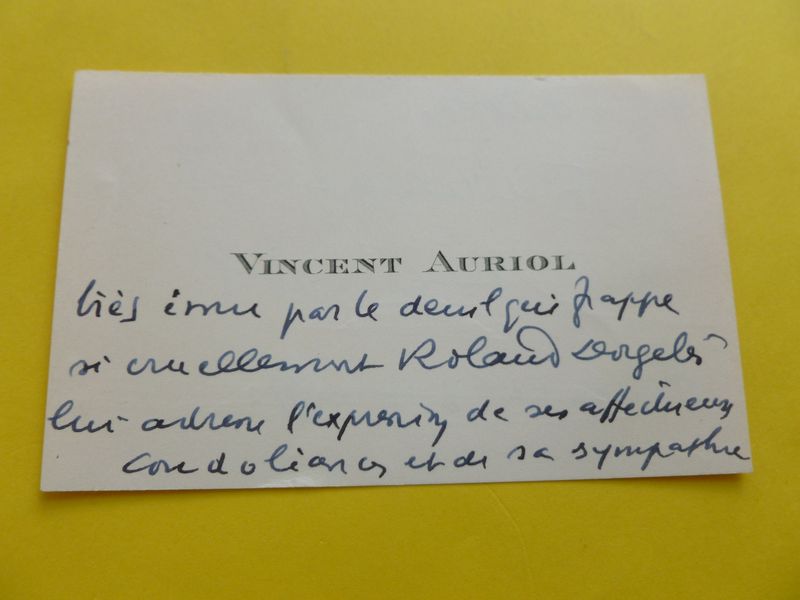 VINCENT AURIOL
très ému par le deuil qui frappe
si cruellement Roland Dorgelès
lui adresse l'expression de ses affectueuses
condoléances et de sa sympathie